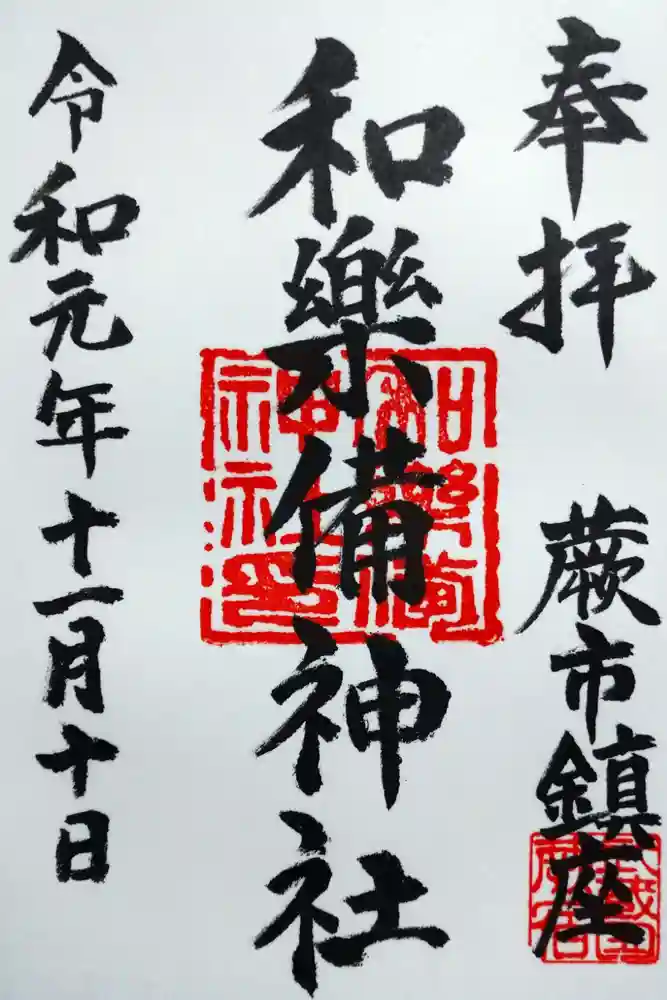 奉拝
蕨市鎮座
和樂備神社
和樂備
神社印
令和元年十一月十日